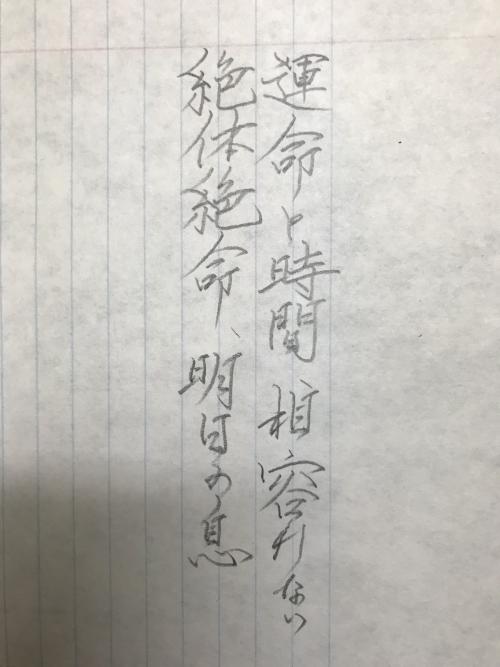 運命と時間相容れない
絶体絶命、明日の息